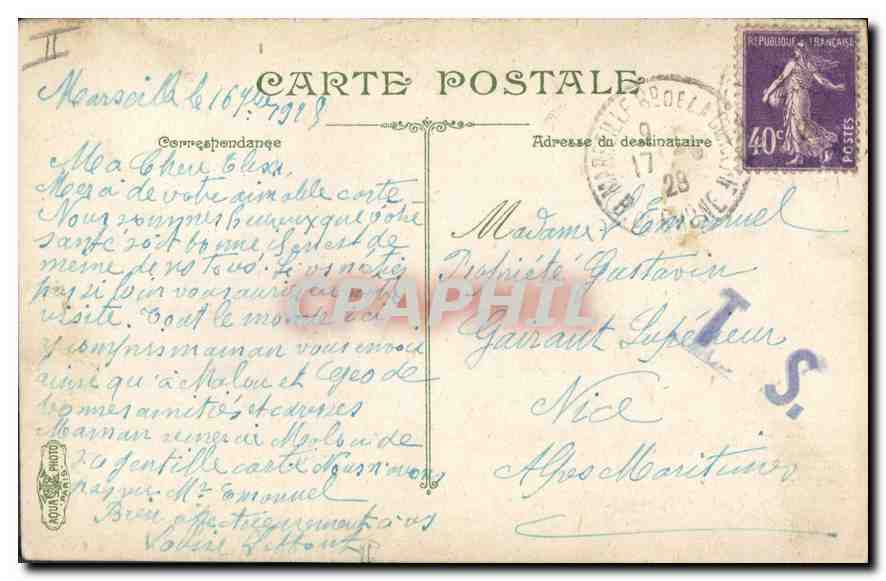 CARTE POSTALE
REPUBLIQUE FRANÇAISE
40c
POSTES
Marseille le 16 1928
Correspondance
Adresse du destinataire
MARSEILLE
17
28
Ma Chere
Merci de votre aimable carte
Nous sommes heureux que votre
santé soit bonne il en est de
meme de ns tous. Si vs n'étiez
pas si loin vous auriez
visite. Tout le monde ici
y compris maman vous envoi
ainsi qu'à Malou et Geo de
bonnes amitiés et caresses
Maman remercie Malou de
sa gentille carte Nous n'avons
pas vu Mr Emanuel
Bien affectueusement à vs
Louise
Madame Emanuel
Propriété Gastavin
Gairaut Supérieur
Nice
Alpes Maritimes
T S.
CPAPHIL
AQUA PHOTO
PARIS